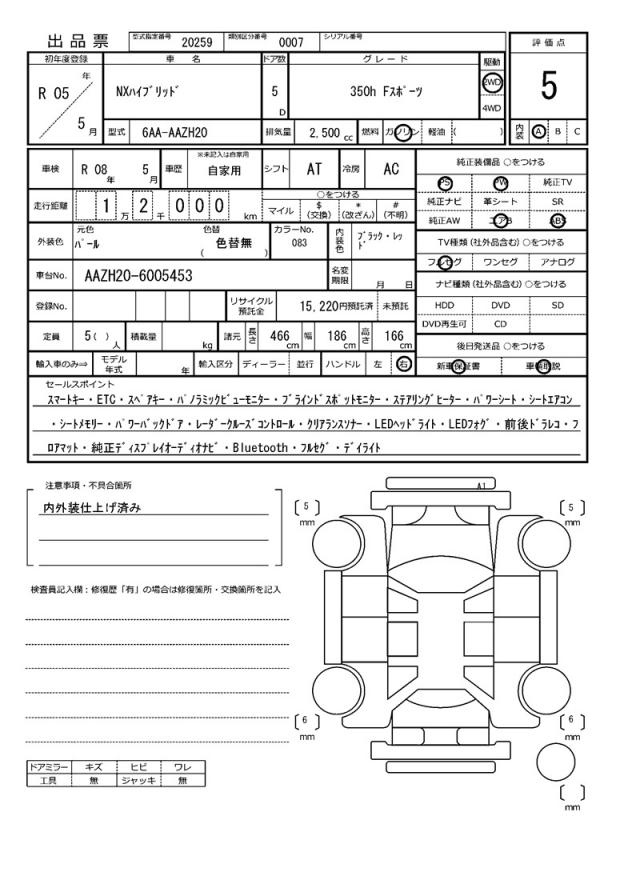 出品票 型式指定番号 20259 類別区分番号 0007 シリアル番号
評価点
5
内装 A B C
初年度登録 車名 ドア数 グレード 駆動
R 05 年 5 月 NXハイブリッド 5 D 350h Fスポーツ 2WD 4WD
型式 6AA-AAZH20 排気量 2,500 cc 燃料 ガソリン 軽油 ( )
車検 R 08 年 5 月 車歴 ※未記入は自家用 自家用 シフト AT 冷房 AC
走行距離 1 万 2 千 0 0 0 km
○をつける
マイル $(交換) *(改ざん) #(不明)
外装色 元色 パール 色替 ( 色替無 ) カラーNo. 083 内装色 ブラック・レッド
車台No. AAZH20-6005453 名変期限 月 日
登録No. リサイクル預託金 15,220円預託済 未預託
定員 5( ) 人 積載量 kg 諸元 長さ 466 cm 幅 186 cm 高さ 166 cm
輸入車のみ⇒ モデル年式 年 輸入区分 ディーラー 並行 ハンドル 左 右
純正装備品 ○をつける
PS PW 純正TV
純正ナビ 革シート SR
純正AW エアB ABS
TV種類(社外品含む)○をつける
フルセグ ワンセグ アナログ
ナビ種類(社外品含む)○をつける
HDD DVD SD
DVD再生可 CD
後日発送品 ○をつける
新車保証書 車輌取説
セールスポイント
スマートキー・ETC・スペアキー・パノラミックビューモニター・ブラインドスポットモニター・ステアリングヒーター・パワーシート・シートエアコン
・シートメモリー・パワーバックドア・レーダークルーズコントロール・クリアランスソナー・LEDヘッドライト・LEDフォグ・前後ドラレコ・フ
ロアマット・純正ディスプレイオーディオナビ・Bluetooth・フルセグ・デイライト
注意事項・不具合箇所
内外装仕上げ済み
検査員記入欄：修復歴「有」の場合は修復箇所・交換箇所を記入
A1
5 mm
5 mm
6 mm
6 mm
mm
ドアミラー キズ ヒビ ワレ
工具 無 ジャッキ 無